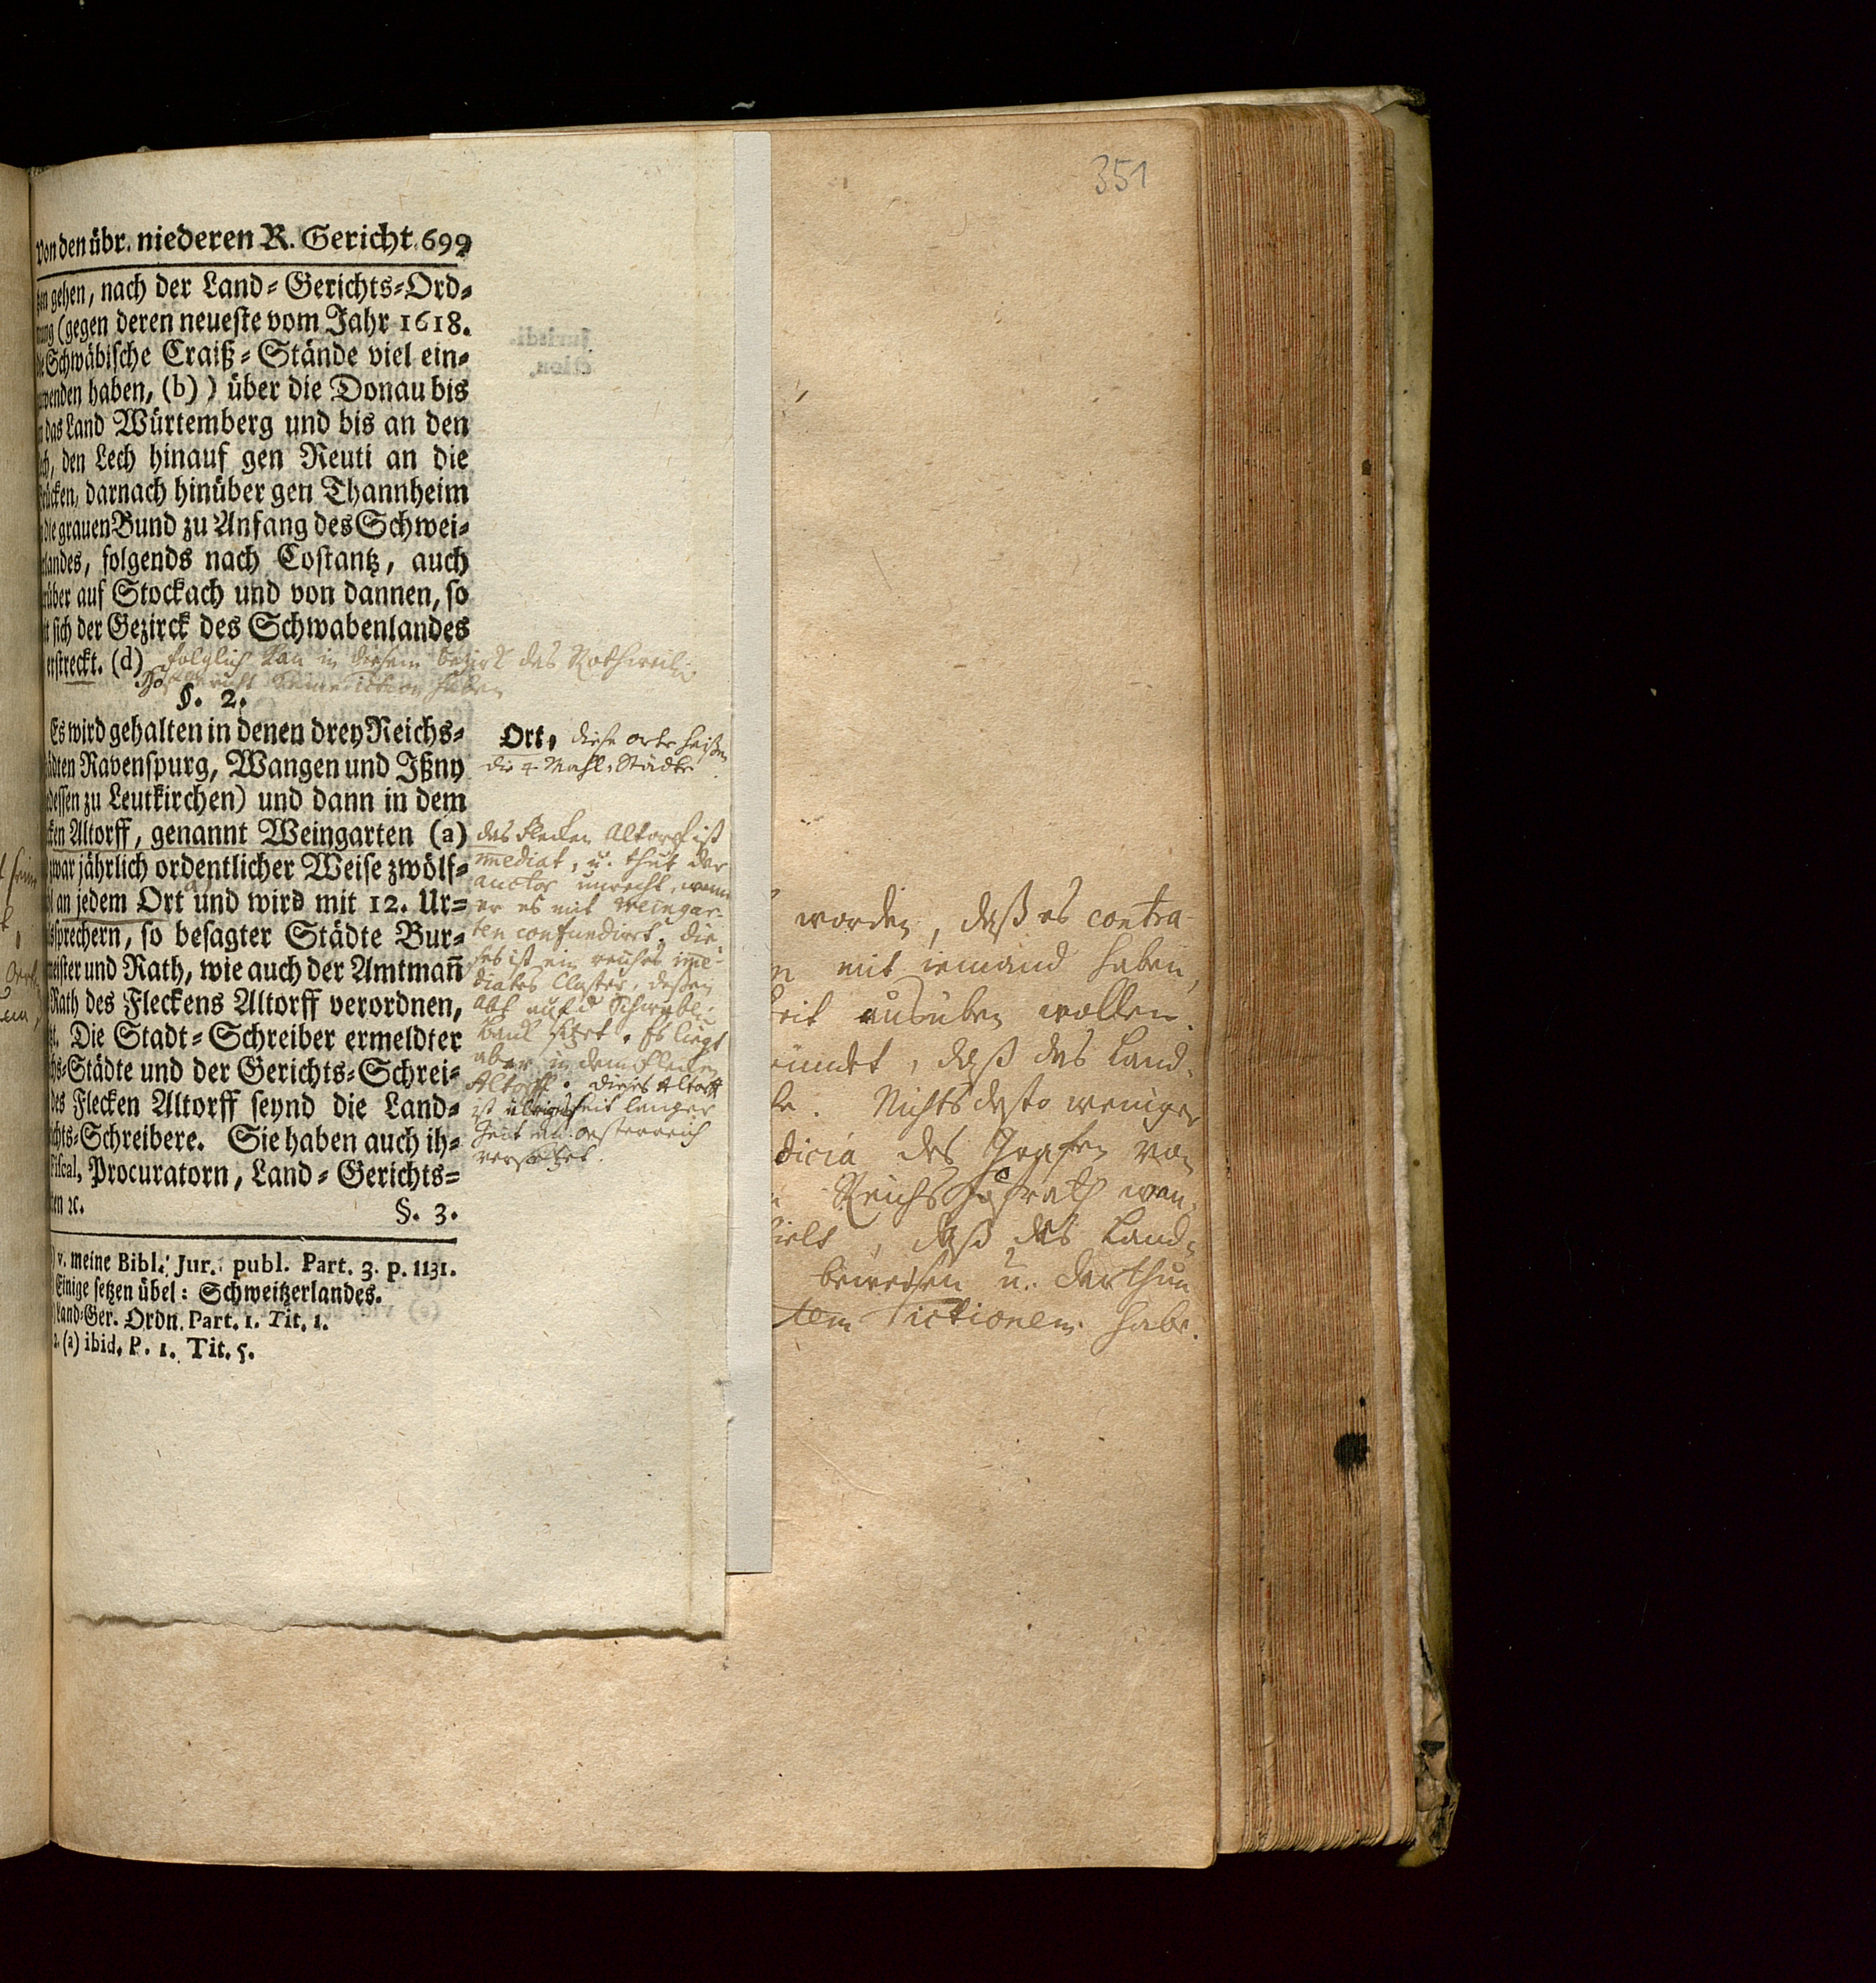 351
Von den übr. niederen R. Gericht. 699
gehen, nach der Land=Gerichts=Ord=
(gegen deren neueste vom Jahr 1618.
Schwäbische Craiß=Stände viel ein=
wenden haben, (b) ) über die Donau bis
das Land Würtemberg und bis an den
den Lech hinauf gen Reuti an die
darnach hinüber gen Thannheim
die grauen Bund zu Anfang des Schwei=
landes, folgends nach Costantz, auch
auf Stockach und von dannen, so
sich der Gezirck des Schwabenlandes
erstreckt. (d)
folglich kan in diesem bezirk das Rothweil.
§. 2.
Es wird gehalten in denen drey Reichs=
Ravenspurg, Wangen und Ißny
zu Leutkirchen) und dann in dem
Altorff, genannt Weingarten (a)
jährlich ordentlicher Weise zwölf=
an jedem Ort und wird mit 12. Ur=
sprechern, so besagter Städte Bur=
meister und Rath, wie auch der Amtmañ
Rath des Fleckens Altorff verordnen,
Die Stadt=Schreiber ermeldter
Städte und der Gerichts=Schrei=
des Flecken Altorff seynd die Land=
Schreibere. Sie haben auch ih=
Fiscal, Procuratorn, Land=Gerichts=
ꝛc. §. 3.
v. meine Bibl. Jur. publ. Part. 3. p. 1131.
Einige setzen übel: Schweitzerlandes.
Land=Ger. Ordn. Part. 1. Tit. 1.
(a) ibid. P. 1. Tit. 5.
Ort, diese orte heißen
die 4. Mahl=Städte
das Flecken Altorf ist
immediat, u. thut der
auctor unrecht, wenn
er es mit Weingar=
ten confundirt. die=
ses ist ein reiches imme=
diates Closter, deßen
Abt auf d. Schwäbl.
banck sitzet. Es liegt
aber in dem Flecken
Altorff. dieses Altorff
ist übrigens seit langer
Zeit an Oesterreich
versetzet.
worden, daß es contra-
mit iemand haben,
ausüben wollen.
daß das Land=
Nichts desto weniger
dicia des Grafen von
Reichs Hofrath
daß das Land=
beweisen u. darthun
ictionem habe.